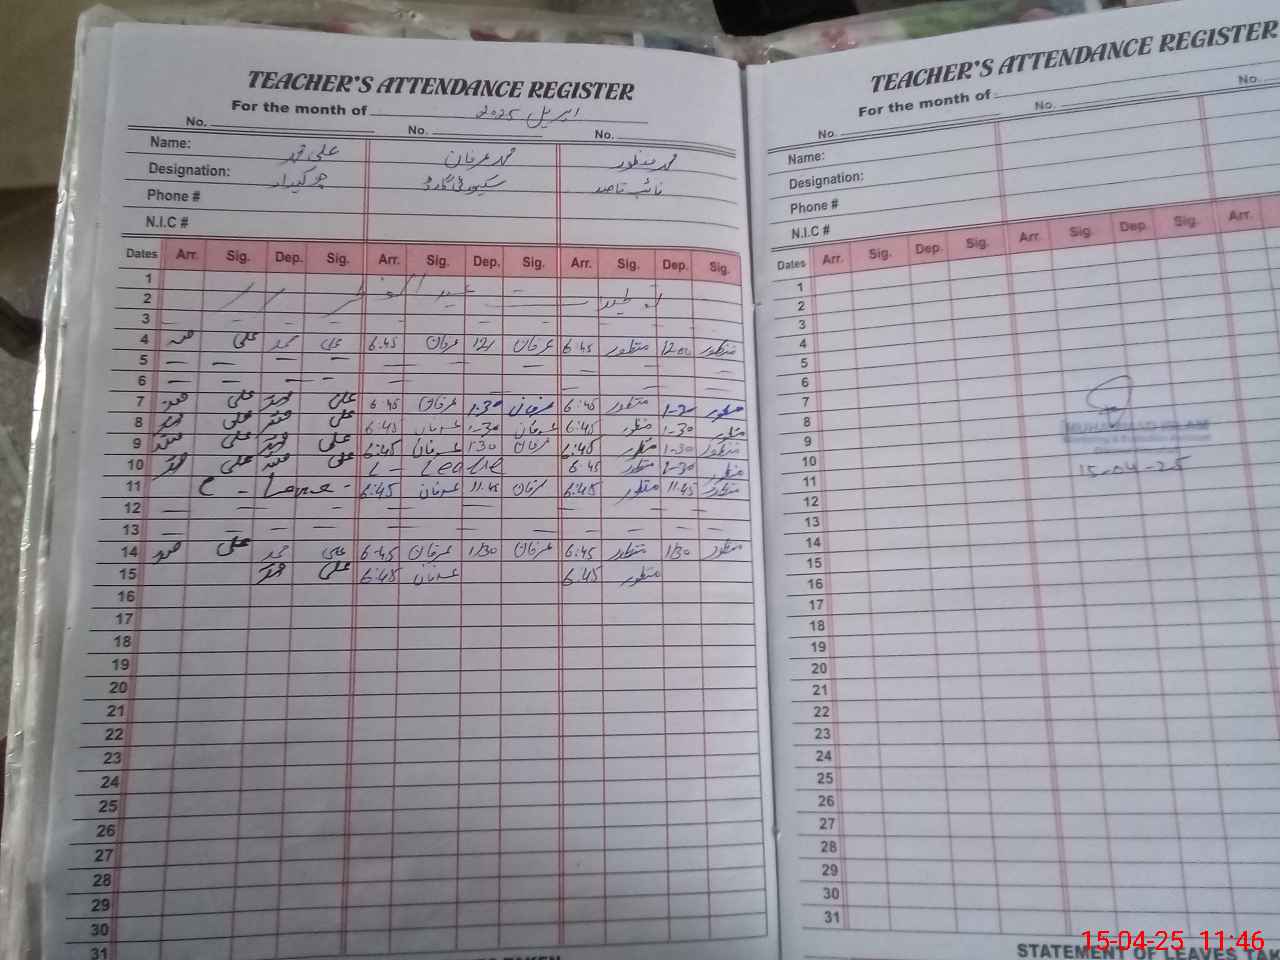 TEACHER'S ATTENDANCE REGISTER
For the month of اپریل 2025
No. No. No.
Name: علی محمد محمد عرفان محمد منظور
Designation: چوکیدار سیکیورٹی گارڈ نائب قاصد
Phone #
N.I.C #
Dates Arr. Sig. Dep. Sig. Arr. Sig. Dep. Sig. Arr. Sig. Dep. Sig.
1
2
3 — — — — — — — — — — —
4 محمد علی محمد علی 6.45 عرفان 12/ عرفان 6:45 منظور 12:00 منظور
5 — — — — — — — — —
6 — — — — — — — — —
7 محمد علی محمد علی 6:45 عرفان 1-30 عرفان 6:45 منظور 1-30 منظور
8 محمد علی محمد علی 6:45 عرفان 1-30 عرفان 6:45 منظور 1-30 منظور
9 محمد علی محمد علی 6:45 عرفان 1:30 عرفان 6:45 منظور 1-30 منظور
10 محمد علی محمد علی Leave 6:45 منظور 1-30 منظور
11 C - Leave - 6:45 عرفان 11:45 عرفان 6:45 منظور 11:45 منظور
12 — — — — — — — — — —
13 — — — — — — — — —
14 محمد علی محمد علی 6-45 عرفان 1/30 عرفان 6:45 منظور 1/30 منظور
15 محمد علی 6:45 عرفان 6:45 منظور
16
17
18
19
20
21
22
23
24
25
26
27
28
29
30
31
TEACHER'S ATTENDANCE REGISTER
For the month of
No. No. No.
Name:
Designation:
Phone #
N.I.C #
Dates Arr. Sig. Dep. Sig. Arr. Sig. Dep. Sig. Arr.
1
2
3
4
5
6
7
8
9
10
11
12
13
14
15
16
17
18
19
20
21
22
23
24
25
26
27
28
29
30
31
15-04-25
STATEMENT OF LEAVES TAK
15-04-25 11:46